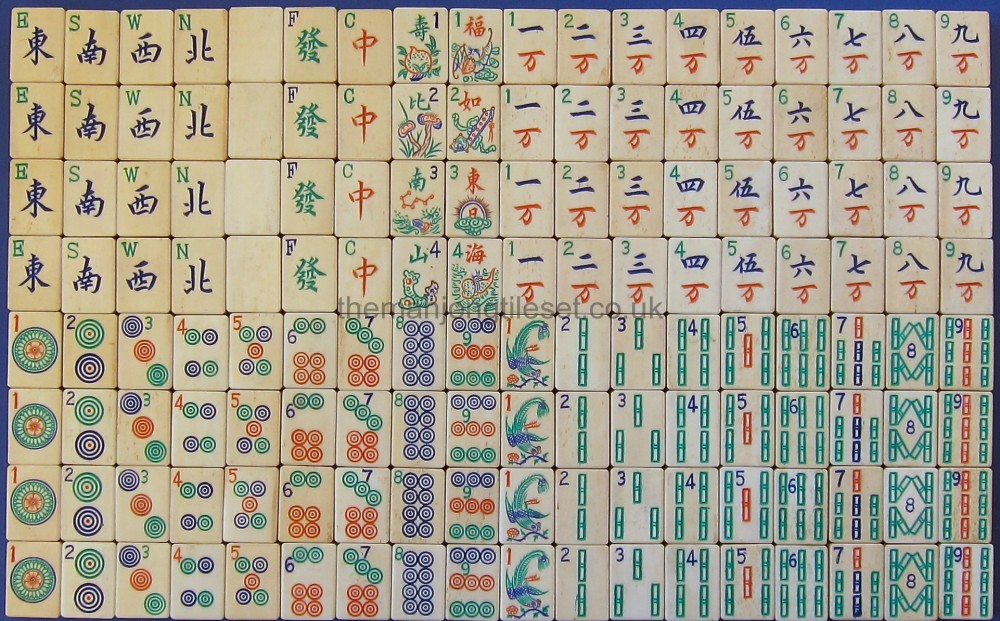 E S W N F C 1 1 1 2 3 4 5 6 7 8 9
東 南 西 北 發 中 壽 福 一 二 三 四 伍 六 七 八 九
万 万 万 万 万 万 万 万 万
E S W N F C 2 2 1 2 3 4 5 6 7 8 9
東 南 西 北 發 中 比 如 一 二 三 四 伍 六 七 八 九
万 万 万 万 万 万 万 万 万
E S W N F C 3 3 1 2 3 4 5 6 7 8 9
東 南 西 北 發 中 南 東 一 二 三 四 伍 六 七 八 九
日 万 万 万 万 万 万 万 万 万
E S W N F C 4 4 1 2 3 4 5 6 7 8 9
東 南 西 北 發 中 山 海 一 二 三 四 伍 六 七 八 九
万 万 万 万 万 万 万 万 万
themahjongtileset.co.uk
1 2 3 4 5 6 7 8 9 1 2 3 4 5 6 7 8 9
1 2 3 4 5 6 7 8 9 1 2 3 4 5 6 7 8 9
1 2 3 4 5 6 7 8 9 1 2 3 4 5 6 7 8 9
1 2 3 4 5 6 7 8 9 1 2 3 4 5 6 7 8 9